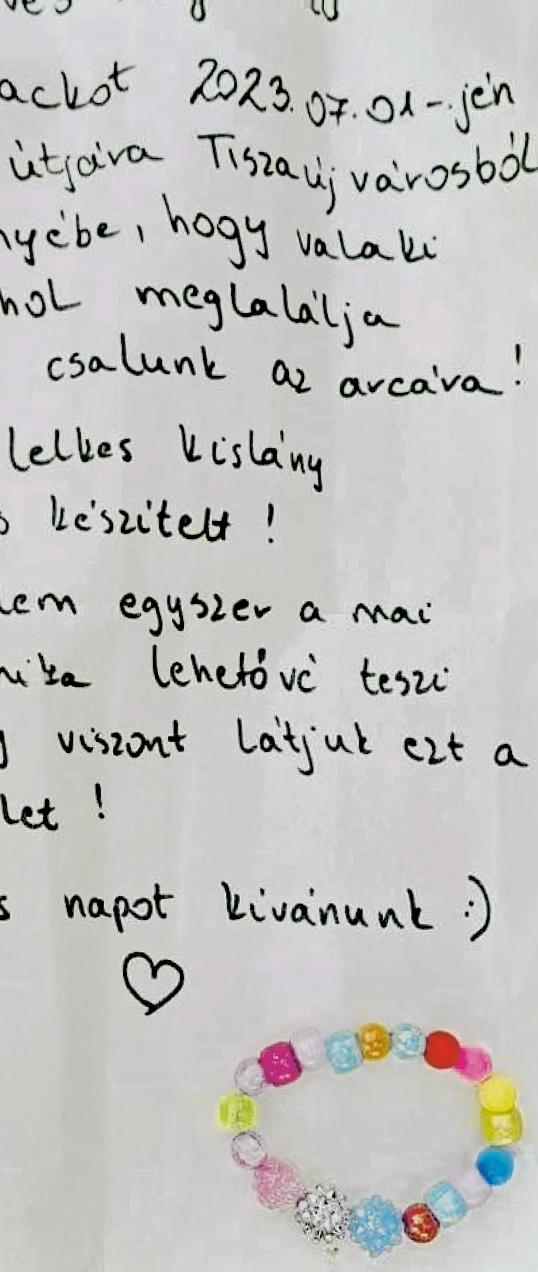 ackot 2023.07.01-.jén
útjára Tiszaújvárosból
nyébe, hogy valaki
hol meglalálja
csalunk az arcára!
lelkes kislány
s készitett!
lem egyszer a mai
nika lehetővé teszi
viszont látjuk ezt a
let!
s napot kívánunk :)